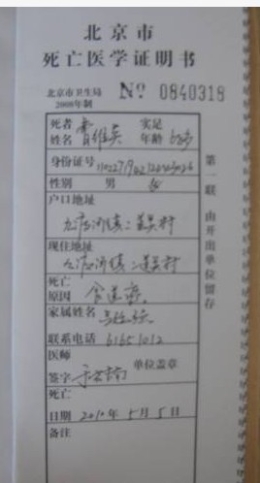 北京市
死亡医学证明书
北京市卫生局
2008年制
№ 0840318
死者
姓名 曹维英 实足
年龄
身份证号
性别 男 女
户口地址
九渡河镇二道关村
现住地址
九渡河镇二道关村
死亡
原因 食道癌
家属姓名
联系电话 61651012
医师
签字 单位盖章
死亡
日期 2010年5月5日
备注
第一联 由开出单位留存